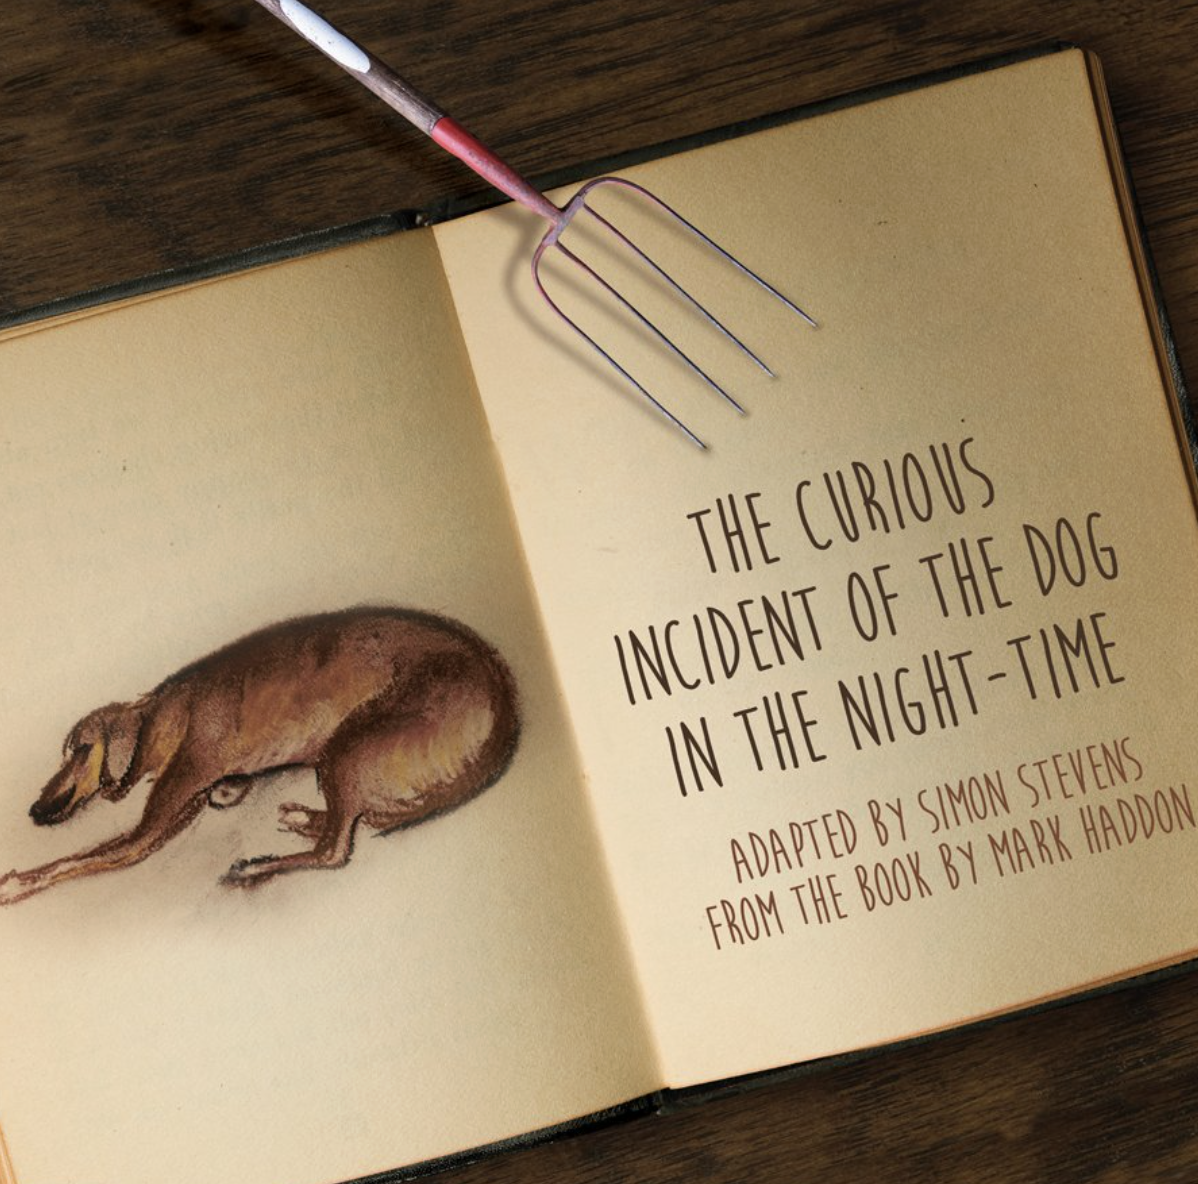 THE CURIOUS
INCIDENT OF THE DOG
IN THE NIGHT-TIME
ADAPTED BY SIMON STEVENS
FROM THE BOOK BY MARK HADDON